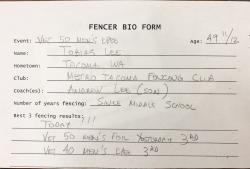 FENCER BIO FORM
Event: VET 50 MEN'S EPEE Age: 49 11/12
Name: TOBIAS LEE
Hometown: TACOMA WA
Club: METRO TACOMA FENCING CLUB
Coach(es): ANDREW LEE (SON)
Number of years fencing: SINCE MIDDLE SCHOOL
Best 3 fencing results:
TODAY !!!
VET 50 MEN'S FOIL YESTERDAY 3RD
VET 40 MEN'S EPEE 3RD